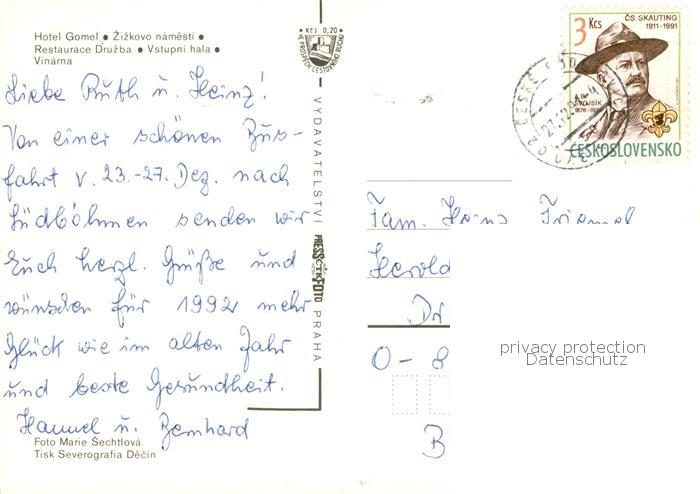 Hotel Gomel ● Žižkovo náměstí ●
Restaurace Družba ● Vstupní hala ●
Vinárna
Liebe Ruth u. Heinz!
Von einer schönen Bus-
fahrt v. 23.-27. Dez. nach
Südböhmen senden wir
Euch herzl. Grüße und
wünschen für 1992 mehr
Glück wie im alten Jahr
und beste Gesundheit.
und Bernhard
Foto Marie Šechtlová
Tisk Severografia Děčín
Kčs 0,20
VE PROSPĚCH CESTOVNÍHO RUCHU
VYDAVATELSTVÍ PRESSFOTO PRAHA
3 Kčs
ČS. SKAUTING
1911-1991
A.B. SVOJSÍK
ČESKOSLOVENSKO
ČESKÉ
Fam. Heinz
Herold
Dr
O-8
B
privacy protection
Datenschutz